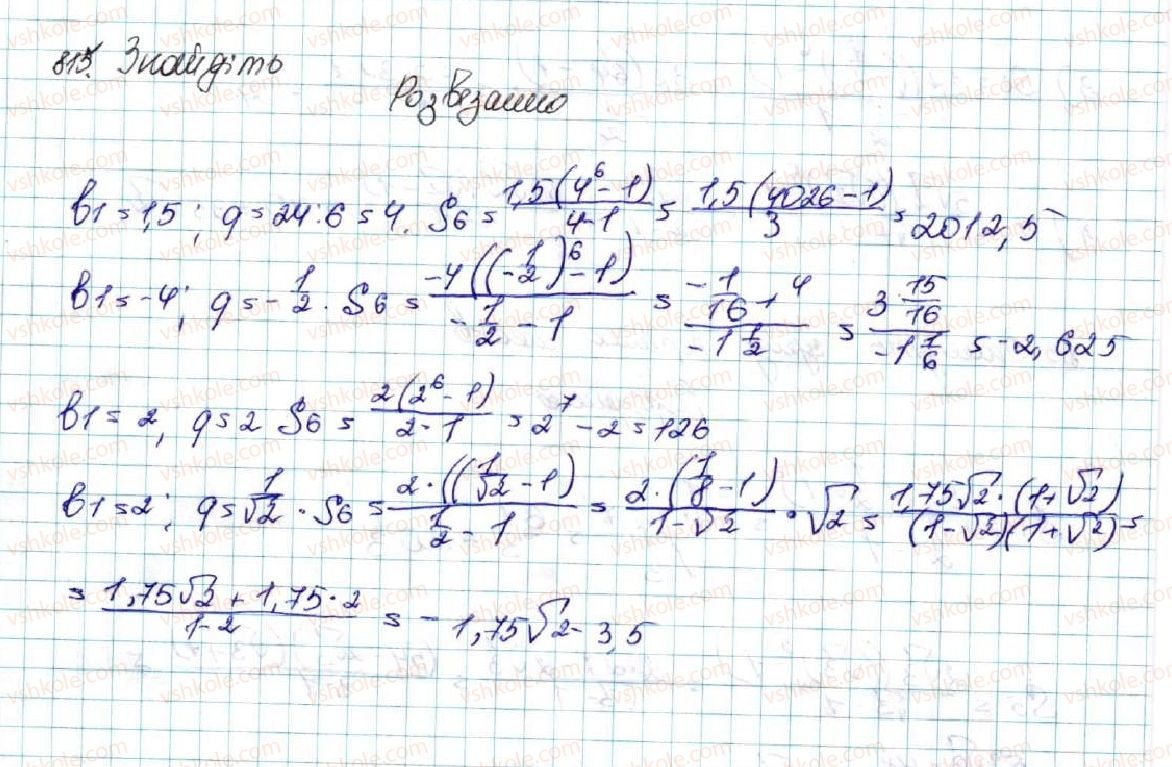 815. Знайдіть
Розв'язання
b1 = 1,5; q = 24:6 = 4. S6 = 1,5(4^6 - 1)/(4-1) = 1,5(4026-1)/3 = 2012,5
b1 = -4; q = -1/2. S6 = -4((-1/2)^6 - 1)/(-1/2 - 1) = (-1/16 + 4)/(-1 1/2) = (3 15/16)/(-1 1/6) = -2,625
b1 = 2; q = 2 S6 = 2(2^6 - 1)/(2-1) = 2^7 - 2 = 126
b1 = 2; q = 1/√2. S6 = 2·((1/√2 - 1)/(1/2 - 1) = 2·(1/8 - 1)/(1-√2) · √2 = 1,75√2·(1+√2)/((1-√2)(1+√2)) =
= (1,75√2 + 1,75·2)/(1-2) = -1,75√2 - 3,5